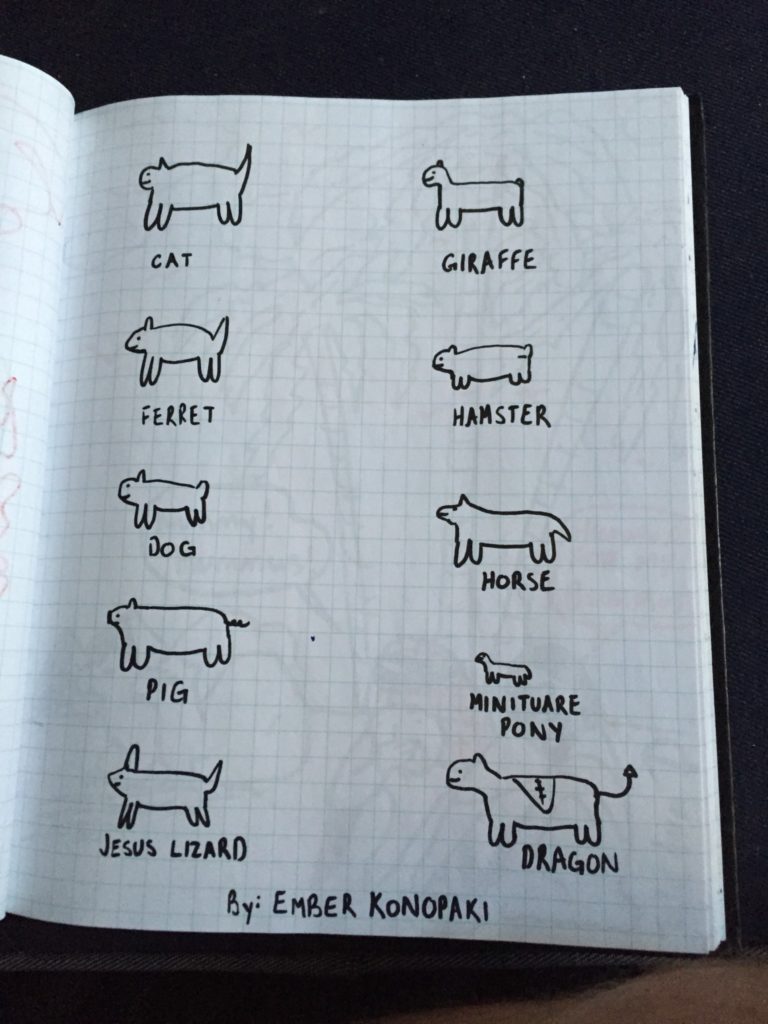 CAT
GIRAFFE
FERRET
HAMSTER
DOG
HORSE
PIG
MINITUARE
PONY
JESUS LIZARD
DRAGON
By: EMBER KONOPAKI